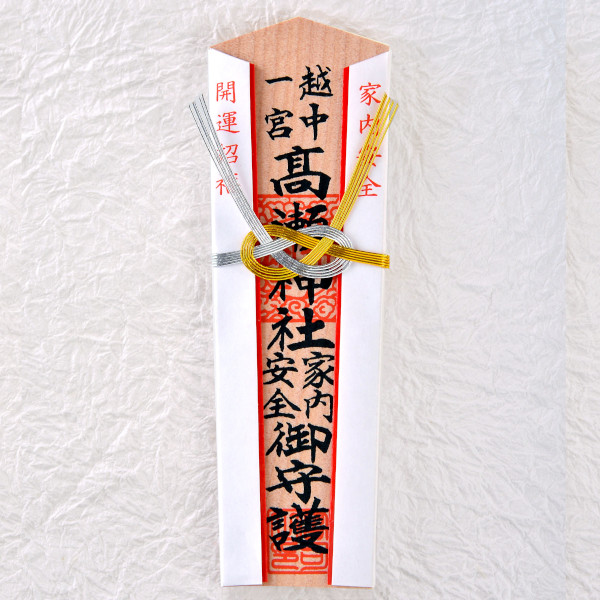 家内安全
越中
一宮
髙瀬神社
家内
安全
御守護
開運招福